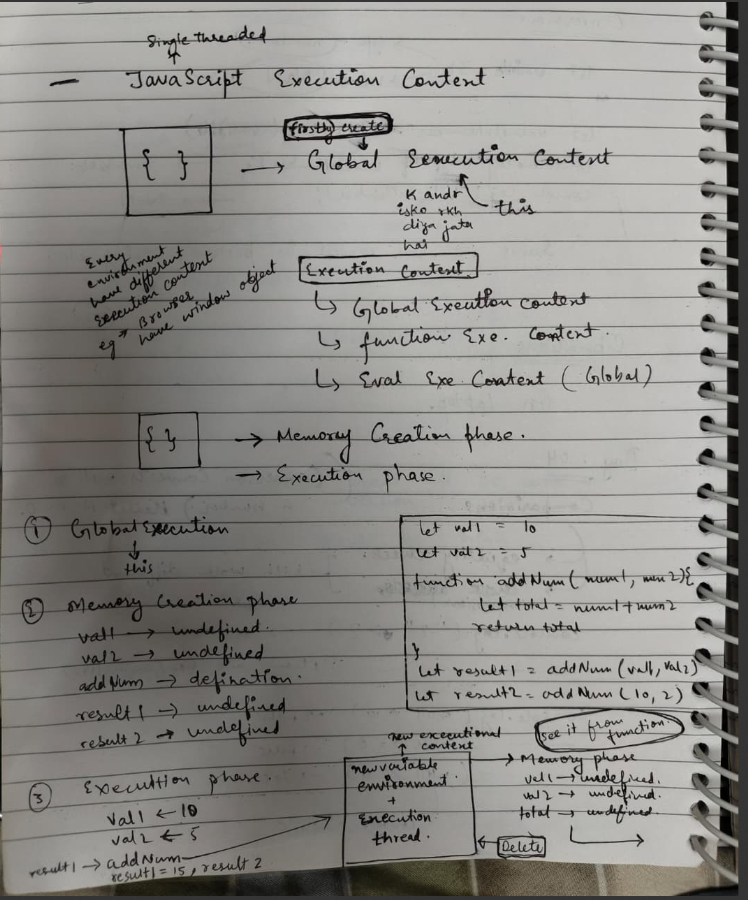 Single threaded
— JavaScript Execution Content
firstly create
{ } → Global Execution Content
K andr
isko rkh
diya jata
hai
this
Every
environment
have different
Execution content
eg → Browser
have window object
Execution Content
↳ Global Execution content
↳ function Exe. Content.
↳ Eval Exe Content ( Global )
{ } → Memory Creation phase.
→ Execution phase.
① Global Execution
↓
this
② Memory Creation phase
val1 → undefined.
val2 → undefined
addNum → defination.
result 1 → undefined
result 2 → undefined
let val1 = 10
let val2 = 5
function addNum ( num1, num2){
let total = num1 + num2
return total
}
let result1 = addNum (val1, val2)
let result2 = addNum ( 10, 2 )
③ Execuition phase.
val1 ← 10
val2 ← 5
result1 → addNum
result1 = 15, result 2
new executional
content
new variable
environment
+
Execution
thread.
see it from
function.
→ Memory phase
val1 → undefined.
val2 → undefined.
total → undefined.
← Delete